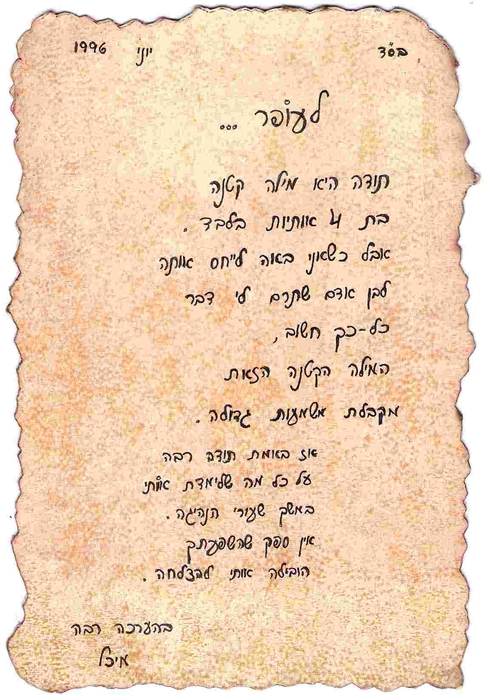 בס"ד יוני 1996
לעופר ...
תודה היא מילה קטנה
בת 4 אותיות בלבד.
אבל כשאני באה לייחס אותה
לבן אדם שתרם לי דבר
כל-כך חשוב,
המילה הקטנה הזאת
מקבלת משמעות גדולה.
אז באמת תודה רבה
על כל מה שלימדת אותי
במשך שעורי הנהיגה.
אין ספק שהשפעתך
הובילה אותי להצלחה.
בהערכה רבה
מיכל